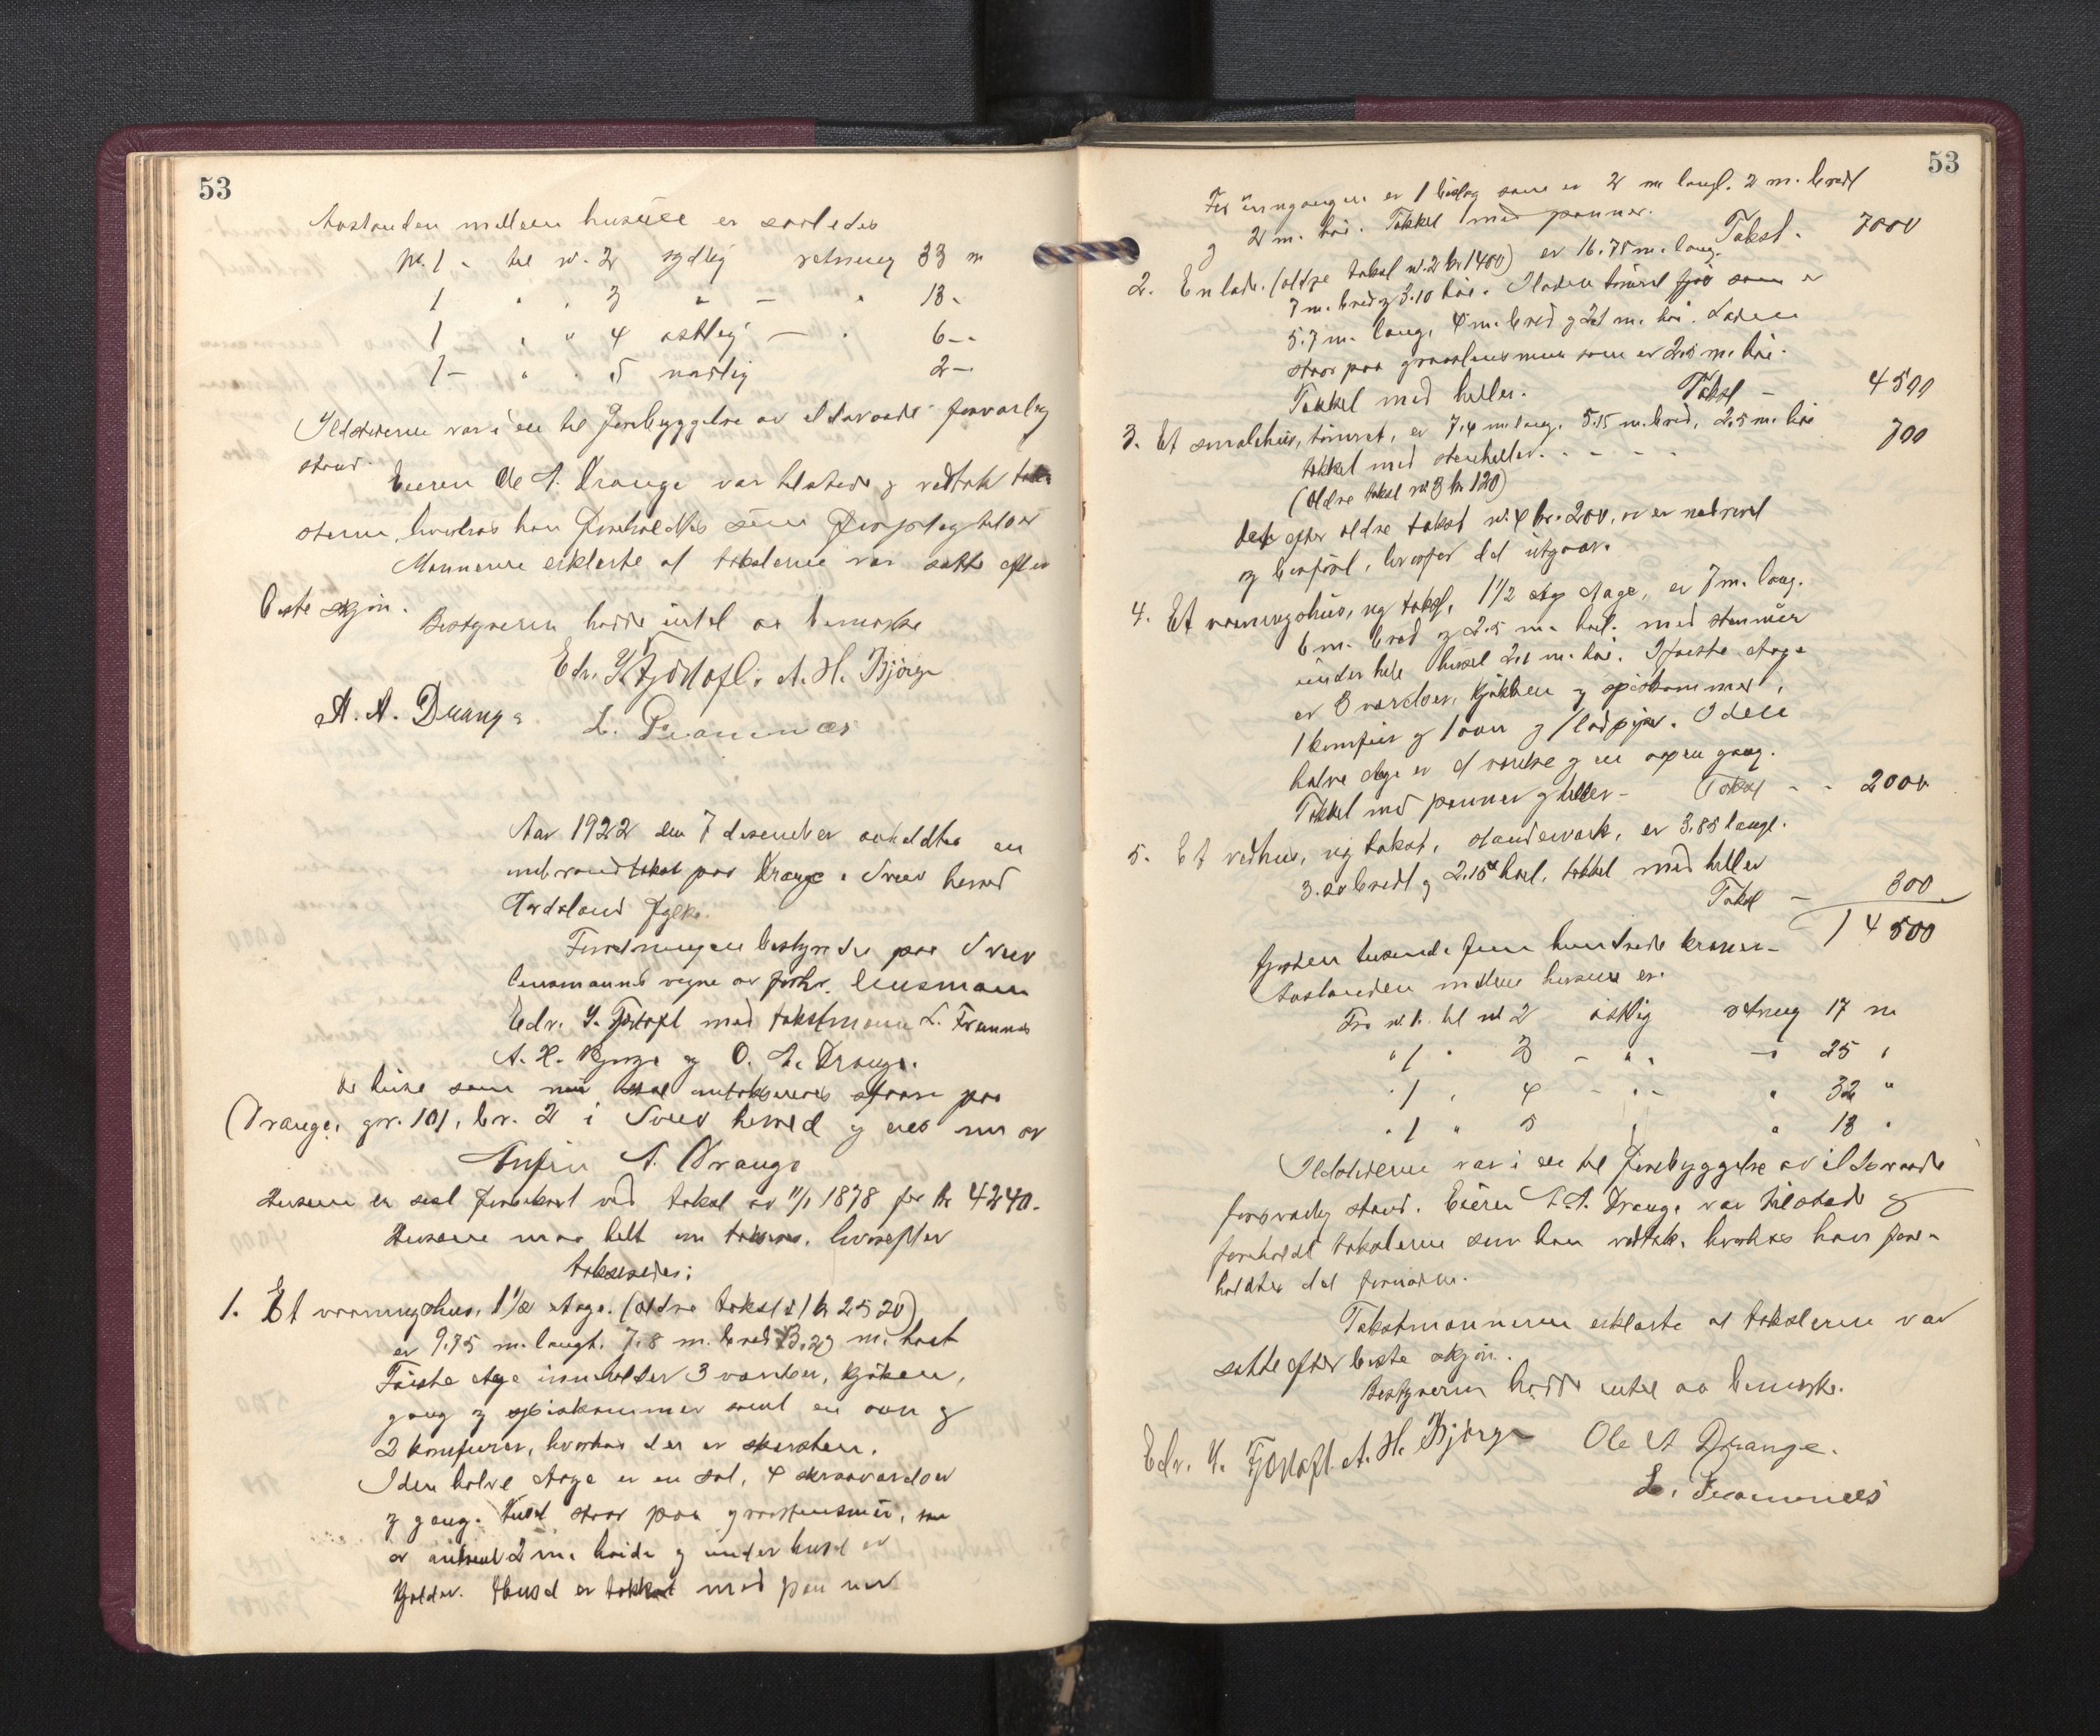 53
Avstanden mellem husene er saaledes
Nr. 1 - til nr. 2 sydlig retning 33 m
1 " " 3 " — " 13 -
1 " " 4 østlig — " 6 - -
1 - " " 5 nordlig 2 -
Ildstederne var i en til forebyggelse av ildsvaade forsvarlig
stand.
Eieren Ole A. Drange var tilstede og vedtok tak-
sterne, hvorhos han foreholdtes sine forpligtelser
Mænnene erklærte at takslerne var satte efter
beste skjøn.
Bestyreren hadde intet at bemerke
Edv. Y. Fjortoft. A. H. Bjørge
A. A. Drange L. Framnæs
Aar 1922 den 7 desember avholdtes en
ombrandtakst paa Drange i Sveio herred
Hordaland fylke.
Forretningen bestyredes paa Sveio
lensmanns vegne av forhv. lensmann
Edv. Y. Fjortoft med takstmenn L. Framnes
A. H. Bjørge og O. A. Drange.
De huse som nu skal omtakseres staar paa
Drange, gr. 101, br. 2 i Sveio herred og eies nu av
Anfin A. Drange
Husene er sist forsikret ved takst av 11/1 1878 for kr 4240.
Husene maa helt om takseres, hvorefter
takseredes:
1. Et vaaningshus, 1 1/2 etage. (ældre takst nr 1 kr 2520)
er 9.75 m. langt. 7.8 m. bred 3.20 m. høit
Første etage inneholder 3 værelser, kjøken,
gang og spiskammer samt en ovn og
2 komfurer, hvorhos der er skorsten.
I den halve etage er en sal, 4 skraaværelser
og gang. Huset staar paa graastensmur, som
er omtrent 2 m. høide og under huset er
kjelder. Huset er tækket med panner
53
For inngangen er 1 bislag som er 2 m langt. 2 m. bredt
og 2 m. høi. Tækket med panner.
Takst - 7000
2. En lade. (ældre takst nr. 2 kr 1400) er 16.75 m. lang.
7 m. bred og 3.10 høi. I laden tømret fjøs som er
5.7 m. lang, 4 m. bred og 2.1 m. høi. Laden
staar paa graastensmur som er 2.5 m. høi.
Tækket med heller. Takst - 4500
3. Et smalehus, tømret, er 7.4 m. lang. 5.15 m. bred, 2.5 m. høi
tækket med stenheller. - - - - 700
(ældre takst nr 3 kr 120)
efter ældre takst nr. 4 kr. 200, er nedrevet
og bortført, hvorfor det utgaar.
4. Et vaaningshus, ny takst, 1 1/2 etage, er 7 m. lang.
6 m. bred og 2.5 m. høit. med stenmur
under hele huset 2.1 m. høi. I første etage
er 3 værelser, kjøkken og spiskammer,
1 komfur og 1 ovn og 1 ladpipe. I den
halve etage er et værelse og en open gang.
Tækket med panner og heller - Takst - - 2000
5. Et vedhus, ny takst, standerverk, er 3.85 langt.
3.20 bredt og 2.15 høit, tækket med heller
Takst - 300
14500
fjorten tusende fem hundrede kroner -
Avstanden mellem husene er:
Fra nr. 1. til nr 2 østlig retning 17 m
" 1 " 3 - " " - " 25 "
" 1 " 4 - " - " 32 "
" 1 " 5 " 13 "
Ildstederne var i en til forebyggelse av ildsvaade
forsvarlig stand. Eieren A. A. Drange var tilstede og
foreholdt takslerne som han vedtok, hvorhos han fore-
holdtes det fornødne.
Takstmænnene erklærte at takslerne var
satte efter beste skjøn.
Bestyreren hadde intet at bemerke.
Edv. Y. Fjortoft. A. H. Bjørge Ole A Drange.
L. Framnæs